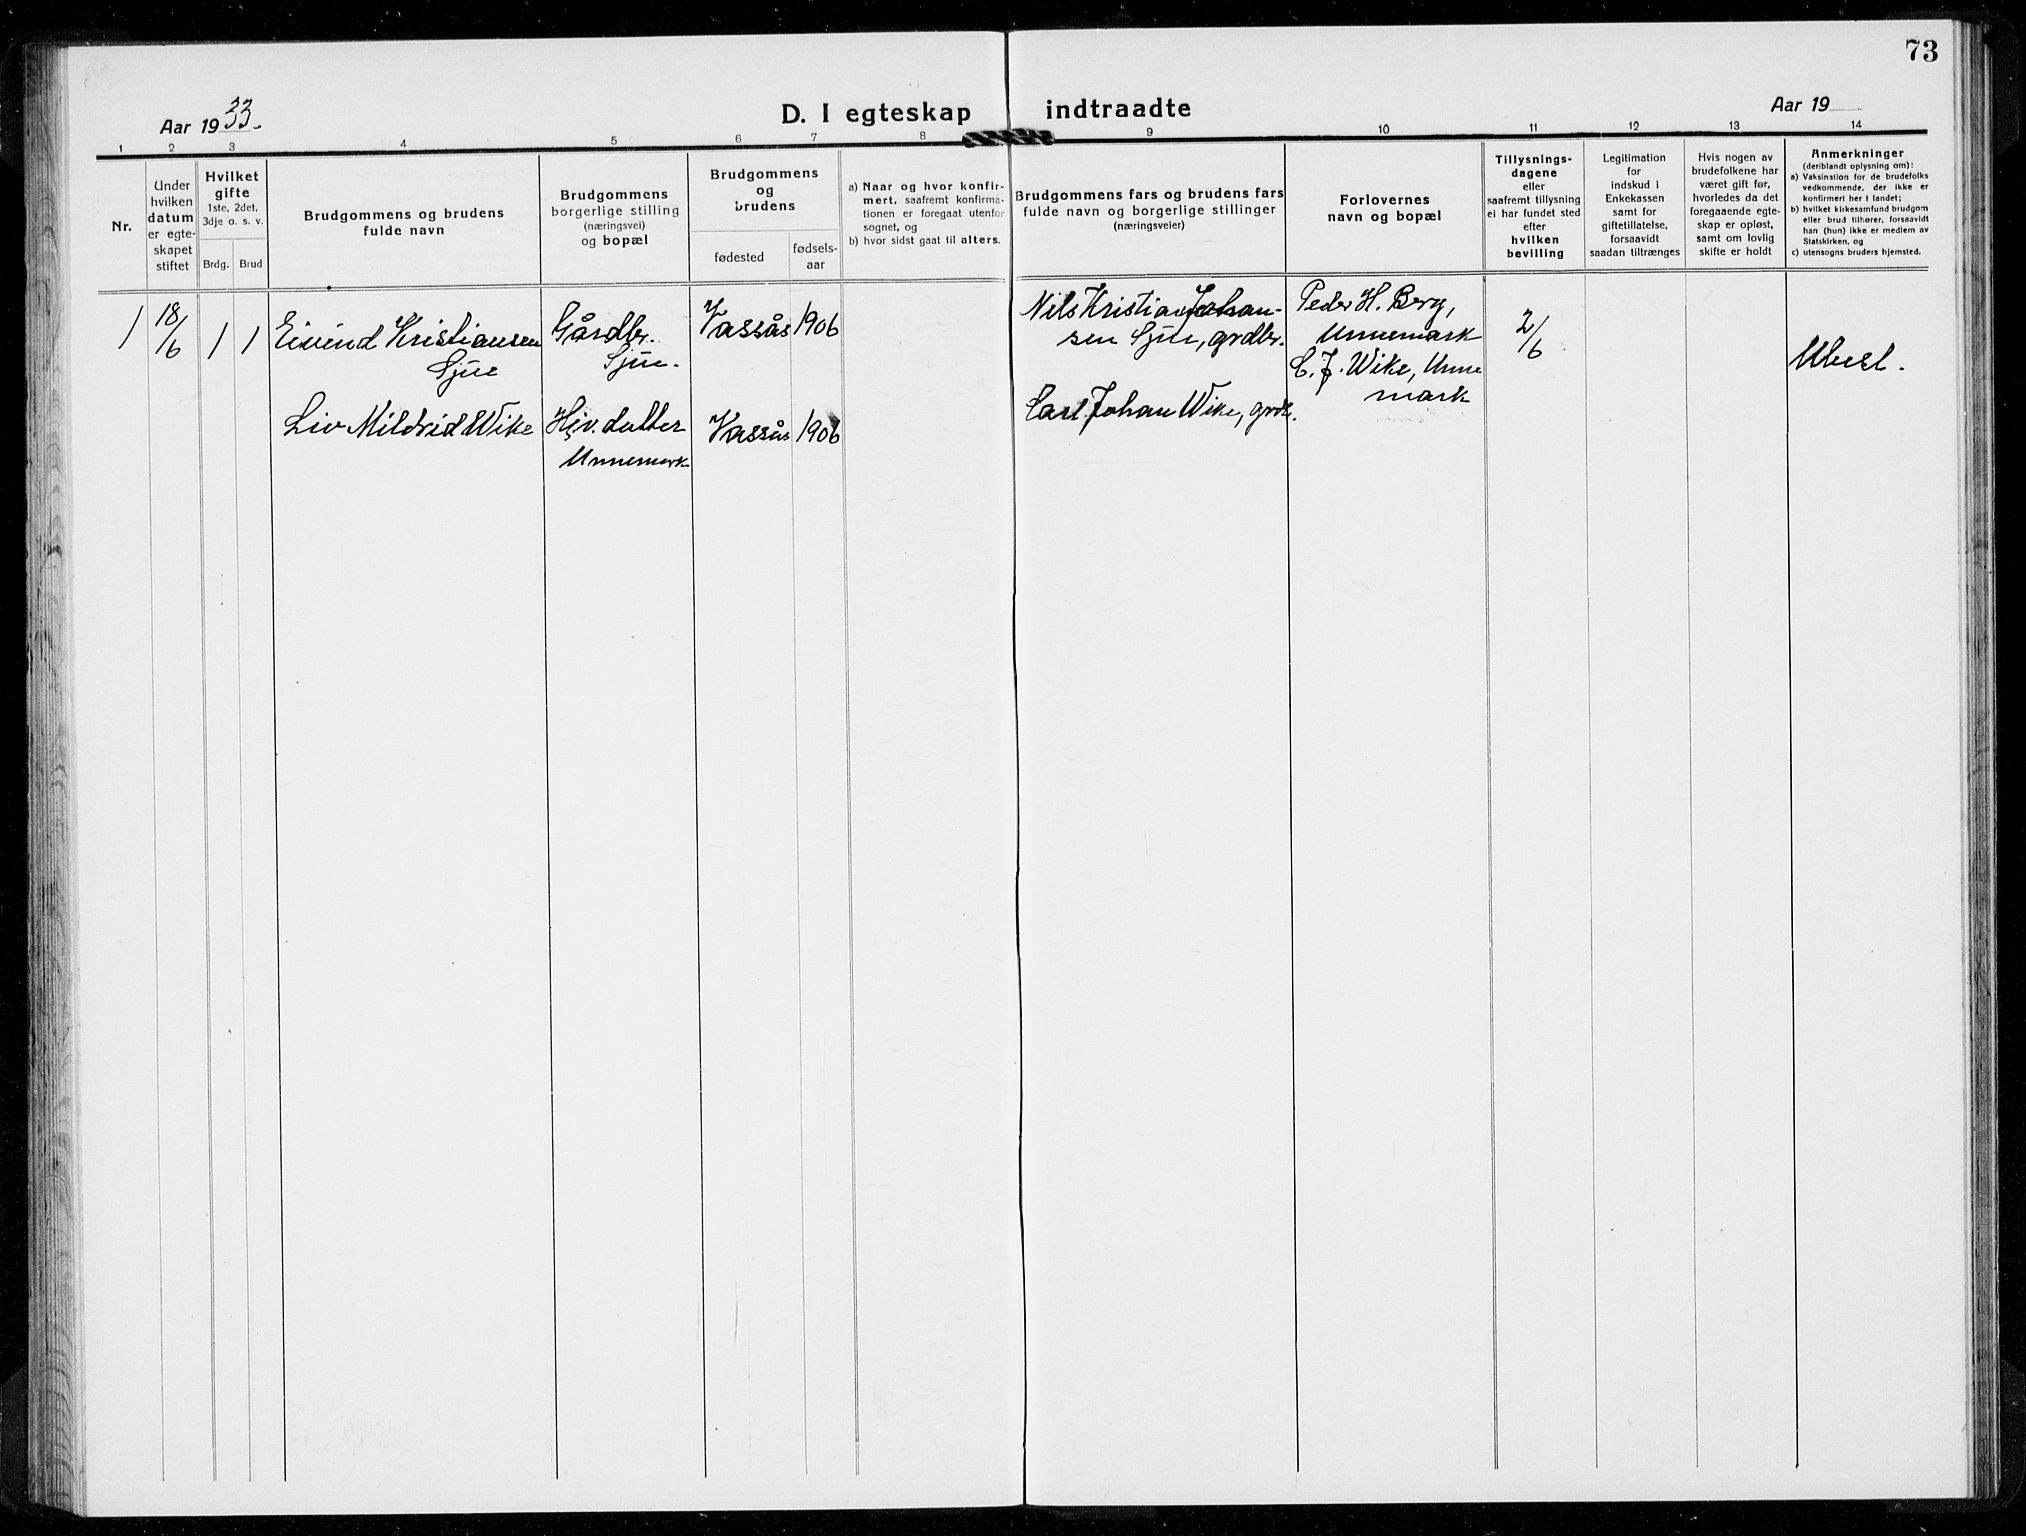 73
Aar 1933.
D. I egteskap indtraadte
Aar 19
1 2 3 4 5 6 7 8 9 10 11 12 13 14
Nr.
Under
hvilken
datum
er egte-
skapet
stiftet
Hvilket
gifte
1ste, 2det,
3dje o. s. v.
Brdg. Brud
Brudgommens og brudens
fulde navn
Brudgommens
borgerlige stilling
(næringsvei)
og bopæl
Brudgommens
og
brudens
fødested
fødsels-
aar
a) Naar og hvor konfir-
mert, saafremt konfirma-
tionen er foregaat utenfor
sognet, og
b) hvor sidst gaat til alters.
Brudgommens fars og brudens fars
fulde navn og borgerlige stillinger
(næringsveier)
Forlovernes
navn og bopæl
Tillysnings-
dagene
eller
saafremt tillysning
ei har fundet sted
efter
hvilken
bevilling
Legitimation
for
indskud i
Enkekassen
samt for
giftetillatelse,
forsaavidt
saadan tiltrænges
Hvis nogen av
brudefolkene har
været gift før,
hvorledes da det
foregaaende egte-
skap er opløst,
samt om lovlig
skifte er holdt
Anmerkninger
(deriblandt oplysning om):
a) Vaksination for de brudefolks
vedkommende, der ikke er
konfirmert her i landet;
b) hvilket kirkesamfund brudgom
eller brud tilhører, forsaavidt
han (hun) ikke er medlem av
Statskirken, og
c) utensogns bruders hjemsted.
1
18/6
1 1
Eivind Kristiansen
Sjue
Gårdbr.
Sjue.
Vassås 1906
Nils Kristian Johan-
sen Sjue, grdbr.
Peder H. Berg,
Unnemark
C. J. Wike, Unne
mark
2/6
Ubesl.
Liv Mildrid Wike
Hjv. datter
Unnemark
Vassås 1906
Carl Johan Wike, grdb.